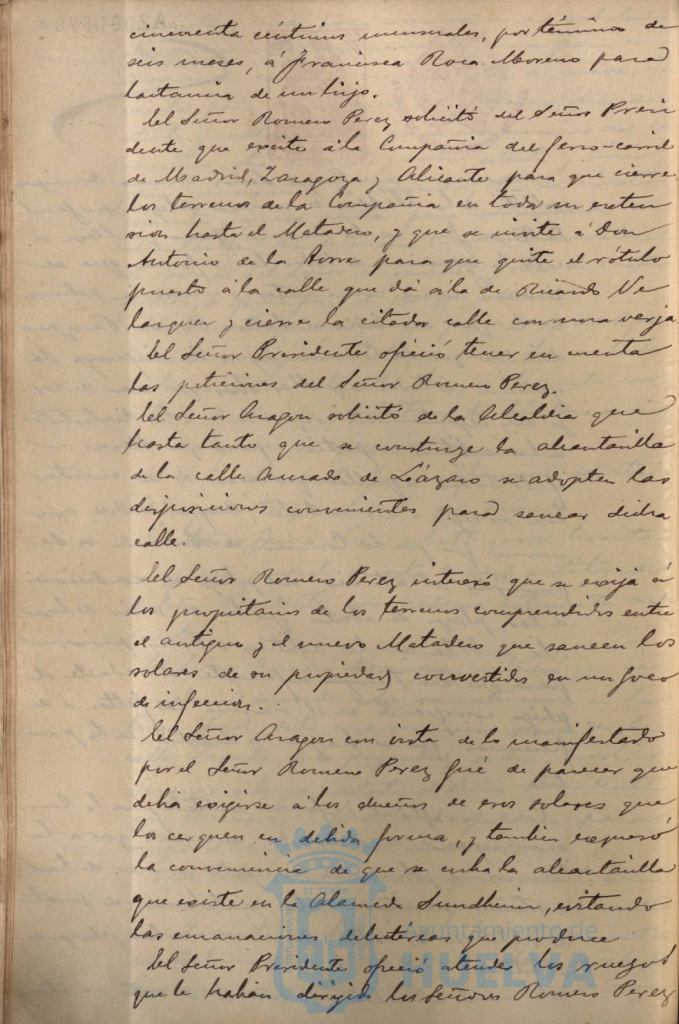 cincuenta céntimos mensuales, por término de
seis meses, á Francisca Roca Moreno para
lactancia de un hijo.
El Señor Romero Perez solicitó del Señor Presi
dente que excite á la Compañia del ferro-carril
de Madrid, Zaragoza y Alicante para que cierre
los terrenos de la Compañia en toda su exten
sion hasta el Matadero, y que se invite á Don
Antonio de la Torre para que quite el rótulo
puesto á la calle que dá á la de Ricardo Ve
lazquez y cierre la citada calle con una verja
El Señor Presidente ofreció tener en cuenta
las peticiones del Señor Romero Perez.
El Señor Aragon solicitó de la Alcaldia que
hasta tanto que se construye la alcantarilla
de la calle Amado de Lázaro se adopten las
disposiciones convenientes para sanear dicha
calle.
El Señor Romero Perez interesó que se exija á
los propietarios de los terrenos comprendidos entre
el antiguo y el nuevo Matadero que saneen los
solares de su propiedad convertidos en un foco
de infeccion.
El Señor Aragon con vista de lo manifestado
por el Señor Romero Perez fué de parecer que
debia exigirse á los dueños de esos solares que
los cerquen en debida forma, y tambien expresó
la conveniencia de que se cubra la alcantarilla
que existe en la Alameda Sundheim, evitando
las emanaciones deletéreas que produce
El Señor Presidente ofreció atender los ruegos
que le habian dirigido los Señores Romero Perez
Ayuntamiento de
HUELVA